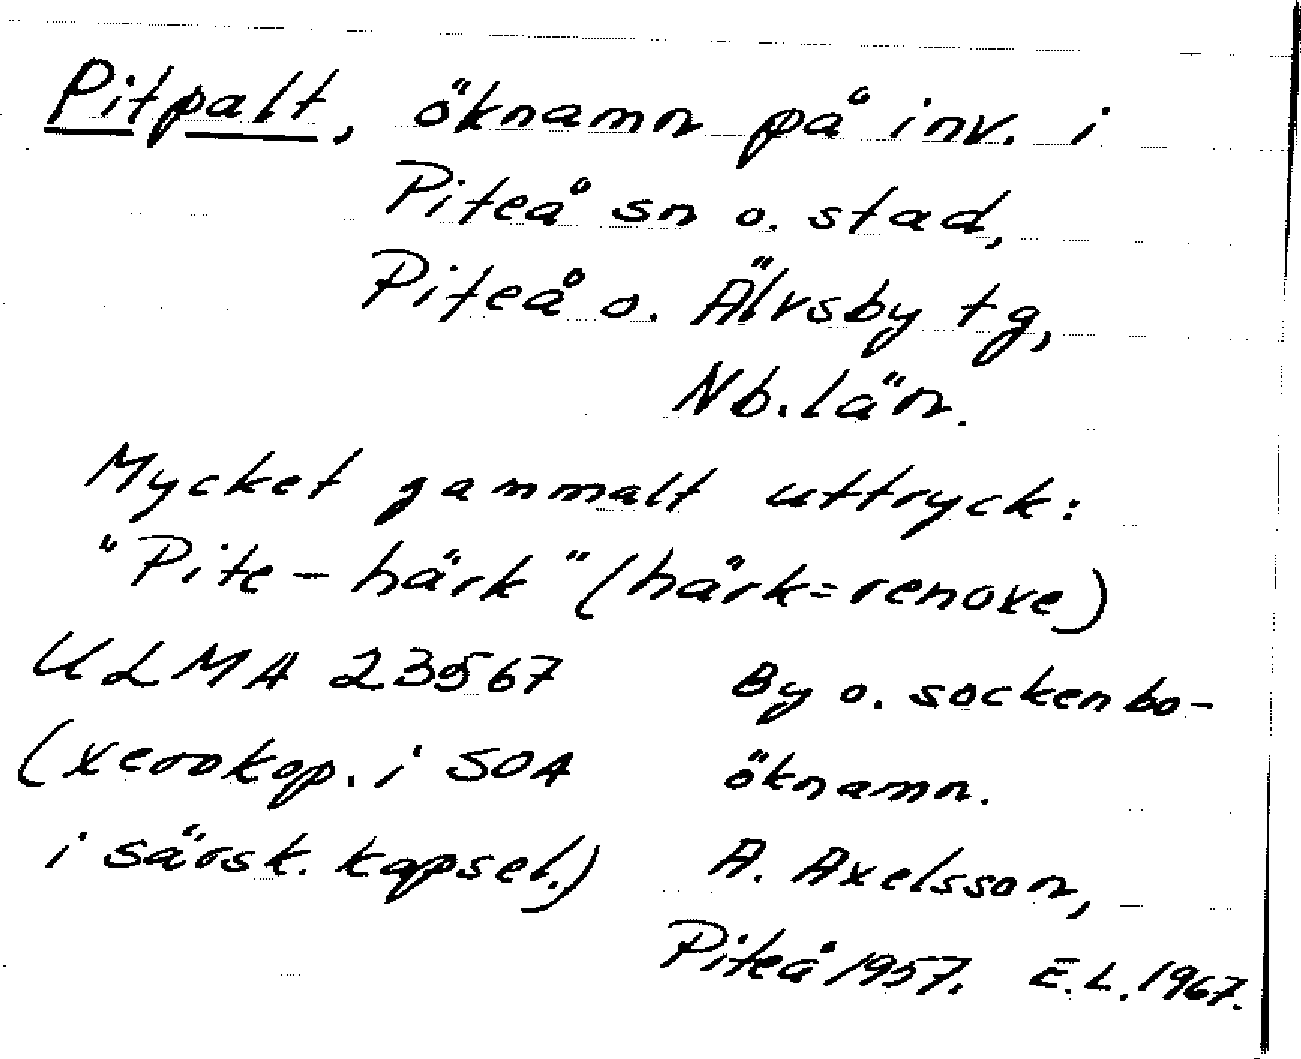 Pitpalt, öknamn på inv. i
Piteå sn o. stad,
Piteå o. Älvsby tg,
Nb. län.
Mycket gammalt uttryck:
"Pite-härk" (härk=renoxe)
ULMA 23567
(xerokop. i SOA
i särsk. kapsel.)
By o. sockenbo-
öknamn.
A. Axelsson,
Piteå 1957. E.L. 1967.